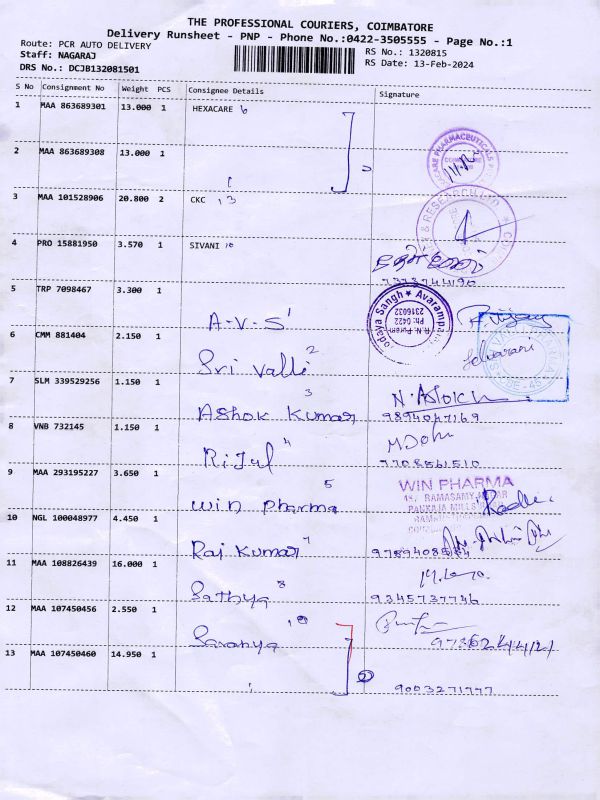 THE PROFESSIONAL COURIERS, COIMBATORE
Delivery Runsheet - PNP - Phone No.:0422-3505555 - Page No.:1
Route: PCR AUTO DELIVERY
RS No.: 1320815
Staff: NAGARAJ
RS Date: 13-Feb-2024
DRS No.: DCJB132081501
S No Consignment No Weight PCS Consignee Details Signature
1 MAA 863689301 13.000 1 HEXACARE 6
2 MAA 863689308 13.000 1
3 MAA 101528906 20.800 2 CKC 13
4 PRO 15881950 3.570 1 SIVANI 10
5 TRP 7098467 3.300 1
A-V-S 1
6 CMM 881404 2.150 1
Sri Valli 2
7 SLM 339529256 1.150 1
Ashok Kumar 3 N. Ashok
9894047169
8 VNB 732145 1.150 1
Rijul 4 M John
7708561510
9 MAA 293195227 3.650 1
WIN PHARMA
Win Pharma 5
10 NGL 100048977 4.450 1
Raj Kumar 7
11 MAA 108826439 16.000 1
Sathya 8 9345737746
12 MAA 107450456 2.550 1
Saranya
13 MAA 107450460 14.950 1
2
9003271777